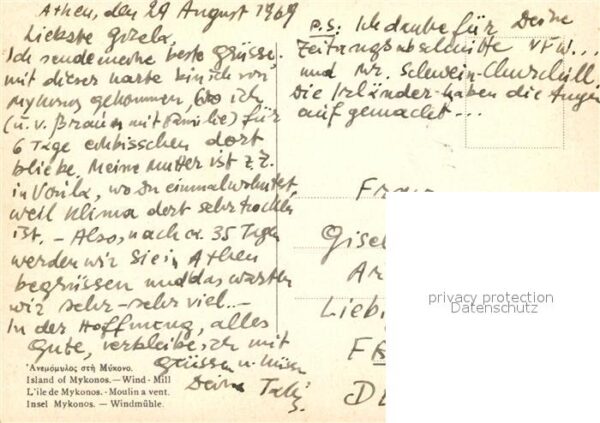 Athen, den 29 August 1969
Liebste Gisela,
Ich sende meine beste Grüsse,
mit dieser Karte bin ich von
Mykonos gekommen, wo ich
(u. v. Braun mit Familie) für
6 Tage ein bisschen dort
bliebe. Meine Mutter ist z.Z.
in Voula, wo Du einmal wohntet,
weil Klima dort sehr trocken
ist. - Also, nach ca. 35 Tagen
werden wir Sie in Athen
begrüssen und das warten
wir sehr-sehr viel...-
In der Hoffnung, alles
Gute, verbleibe, ich mit
Grüssen u.
Deine
P.S: Ich danke für Deine
Zeitungsabschnitte VFW...
und Mr. Schwein-Churchill,
Die Irländer haben die Augen
auf gemacht...
Frau
Gisel
Ar
Liebi
F
D
privacy protection
Datenschutz
Ἀνεμόμυλος στὴ Μύκονο.
Island of Mykonos. — Wind - Mill
L'ile de Mykonos. - Moulin a vent.
Insel Mykonos. — Windmühle.